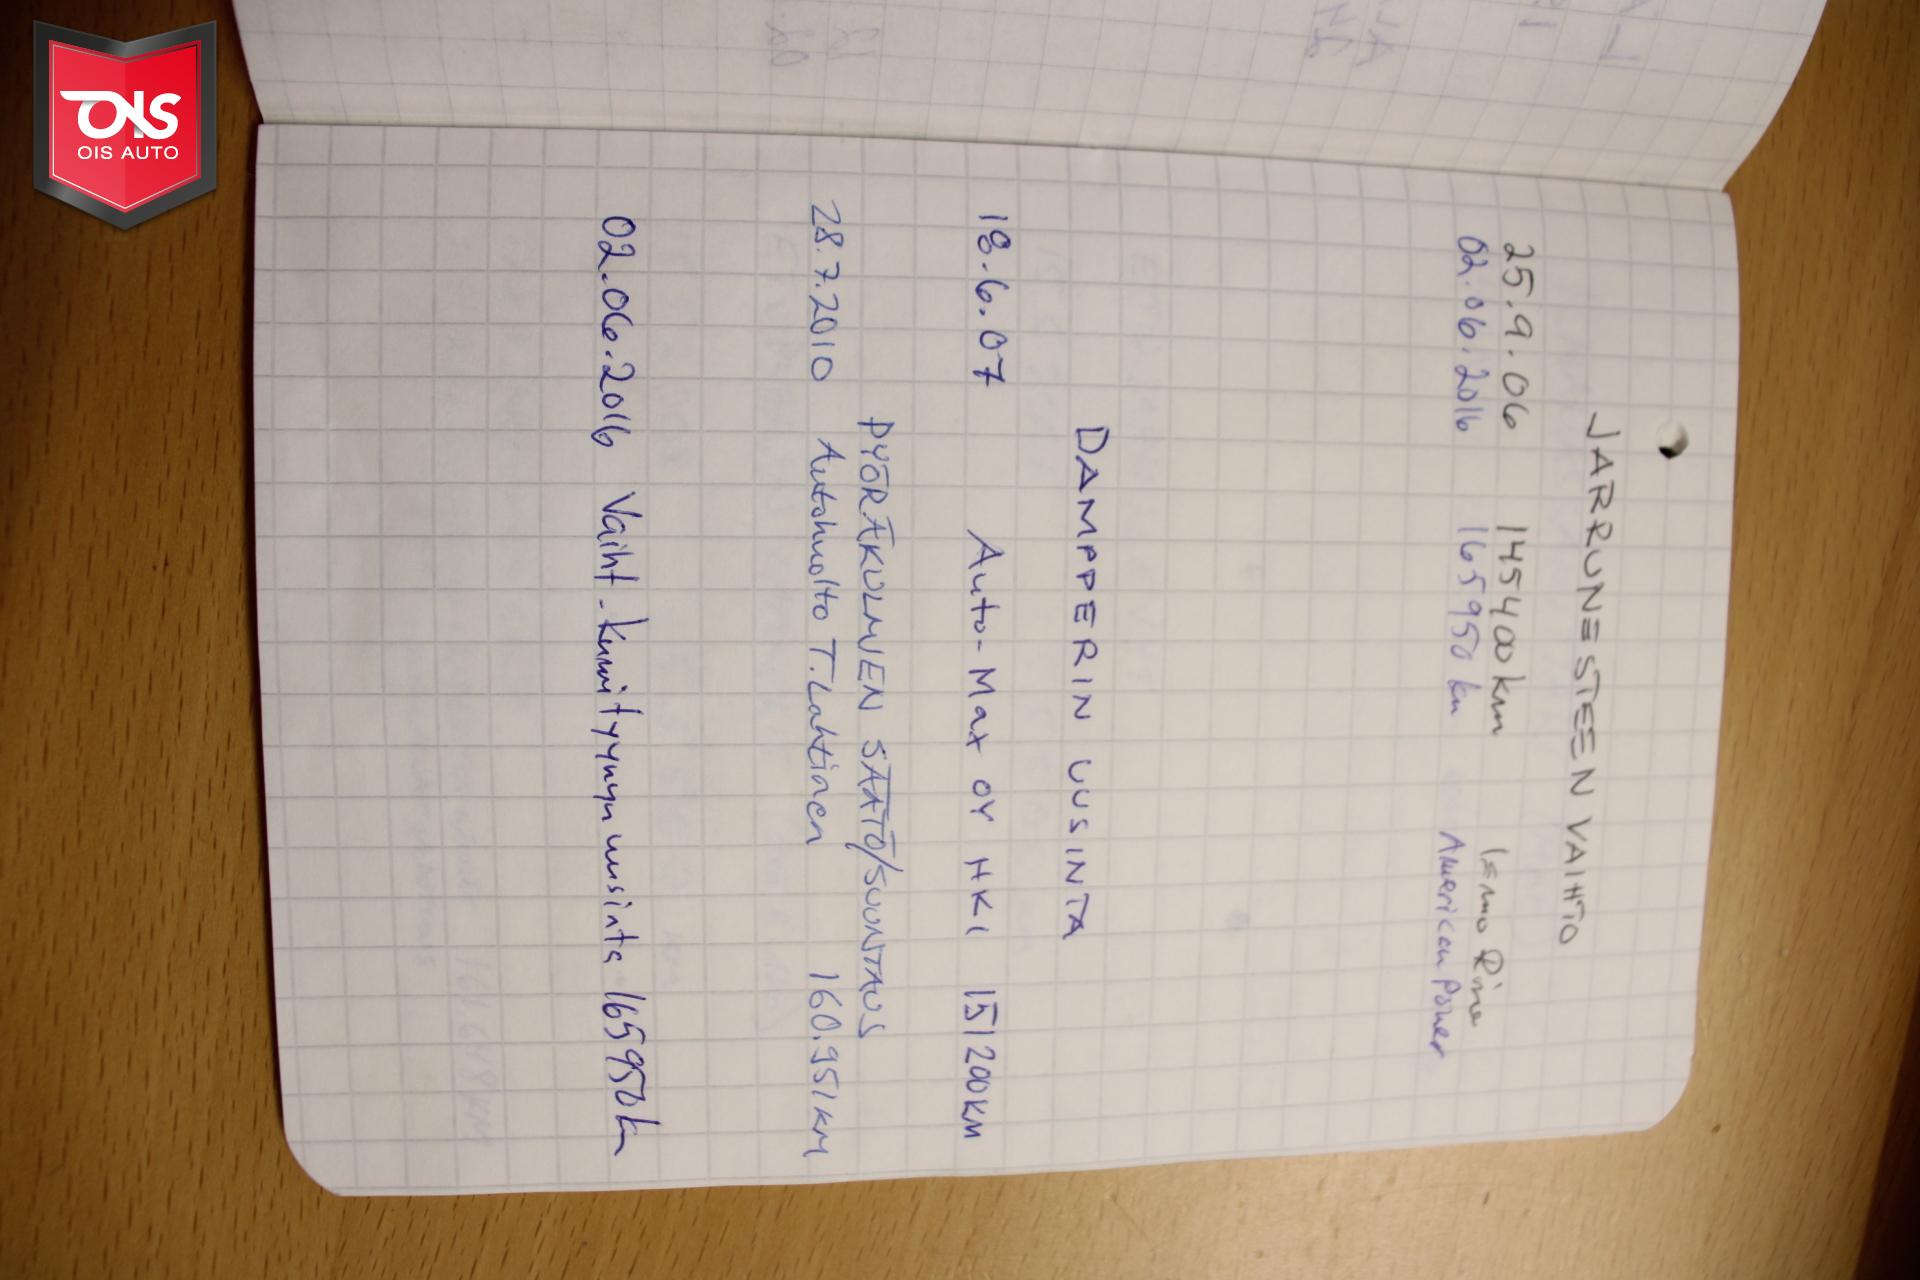 OIS
OIS AUTO
JARRUNESTEEN VAIHTO
25.9.06 145400 km Ismo Rine
02.06.2016 165950 km American Power
DAMPPERIN UUSINTA
18.6.07 Auto-Max OY HKI 151200KM
PYÖRÄKULMIEN SÄÄTÖ/SUUNTAUS
28.7.2010 Autohuolto T.Lahtinen 160.951KM
02.06.2016 Vaiht.kumityynyn uusinta 165950km